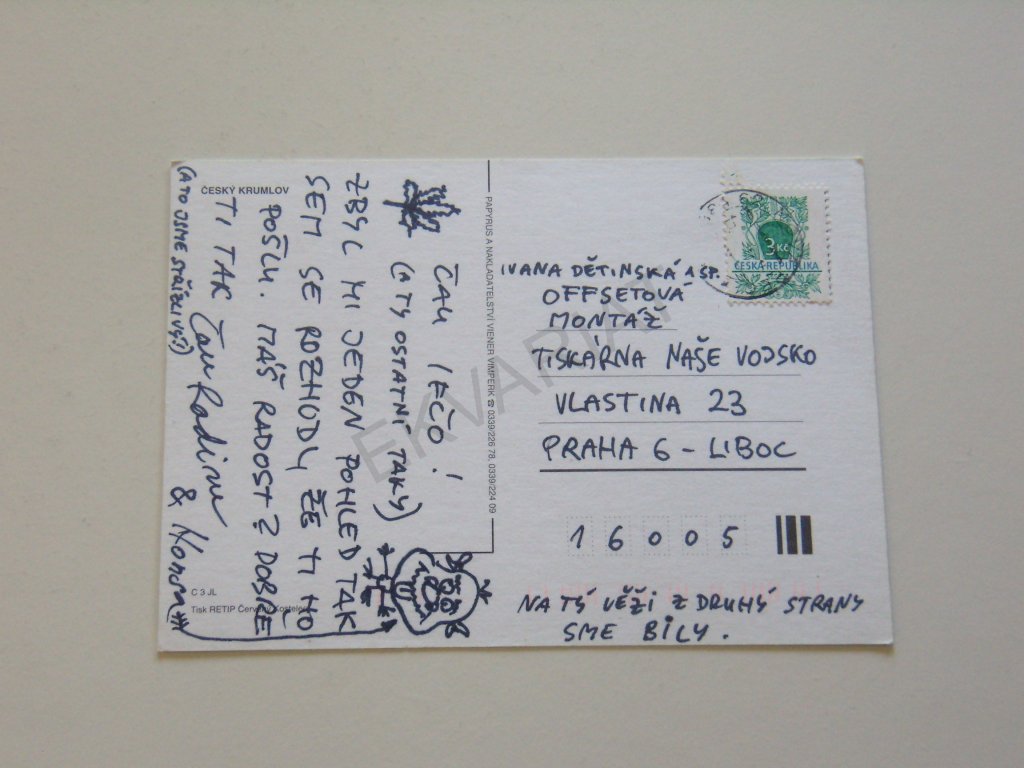 ČESKÝ KRUMLOV
ČAU IEČO!
(A TY OSTATNÍ TAKY)
ZBYL MI JEDEN POHLED TAK
SEM SE ROZHODL, ŽE TI HO
POŠLU. MÁŠ RADOST? DOBŘE
TI TAK Čau Radim
& Honom
(A TO JSME STŘÍZLIVÝ!)
C 3 JL
Tisk RETIP Červený Kostelec
PAPYRUS A NAKLADATELSTVÍ VIENER VIMPERK ☎ 0339/226 78, 0339/224 09
3 Kč
ČESKÁ REPUBLIKA
IVANA DĚTINSKÁ A SP.
OFFSETOVÁ
MONTÁŽ
TISKÁRNA NAŠE VOJSKO
VLASTINA 23
PRAHA 6 - LIBOC
16005
NA TÝ VĚŽI Z DRUHÝ STRANY
SME BYLY.
EKVARIAT